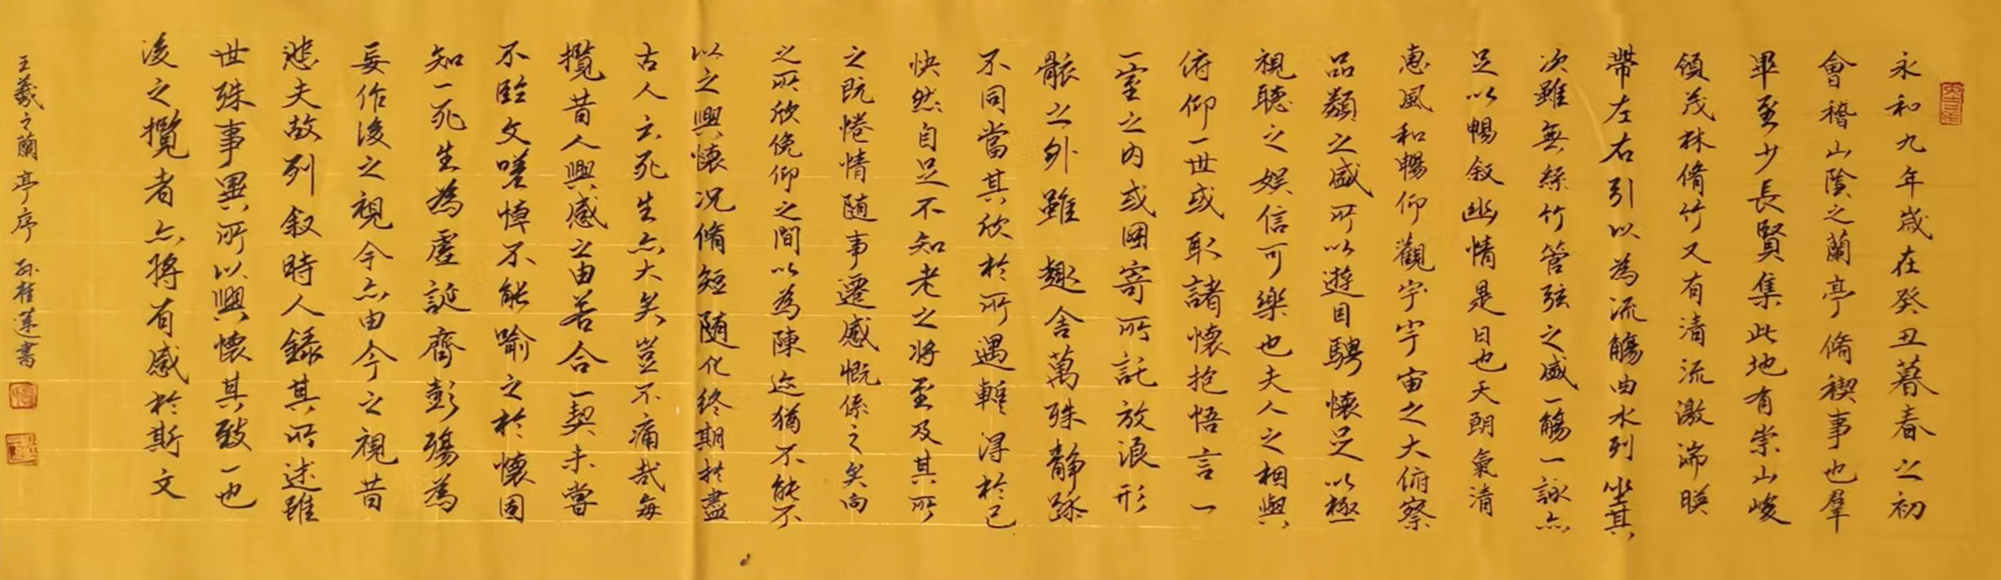 永和九年歲在癸丑暮春之初
會稽山陰之蘭亭脩禊事也羣
畢至少長賢集此地有崇山峻
領茂林脩竹又有清流激湍暎
帶左右引以為流觴曲水列坐其
次雖無絲竹管弦之盛一觴一詠亦
足以暢叙幽情是日也天朗氣清
惠風和暢仰觀宇宇宙之大俯察
品類之盛所以遊目騁懷足以極
視聽之娛信可樂也夫人之相與
俯仰一世或取諸懷抱悟言一
一室之內或因寄所託放浪形
骸之外雖趣舍萬殊静躁
不同當其欣於所遇暫得於己
快然自足不知老之将至及其所
之既惓情随事遷感慨係之矣向
之所欣俛仰之間以為陳迹猶不能不
以之興懷况脩短随化終期於盡
古人云死生亦大矣豈不痛哉每
攬昔人興感之由若合一契未嘗
不臨文嗟悼不能喻之於懷固
知一死生為虛誕齊彭殤為
妄作後之視今亦由今之視昔
悲夫故列叙時人錄其所述雖
世殊事異所以興懷其致一也
後之攬者亦將有感於斯文
王羲之蘭亭序 孙桂蓮書